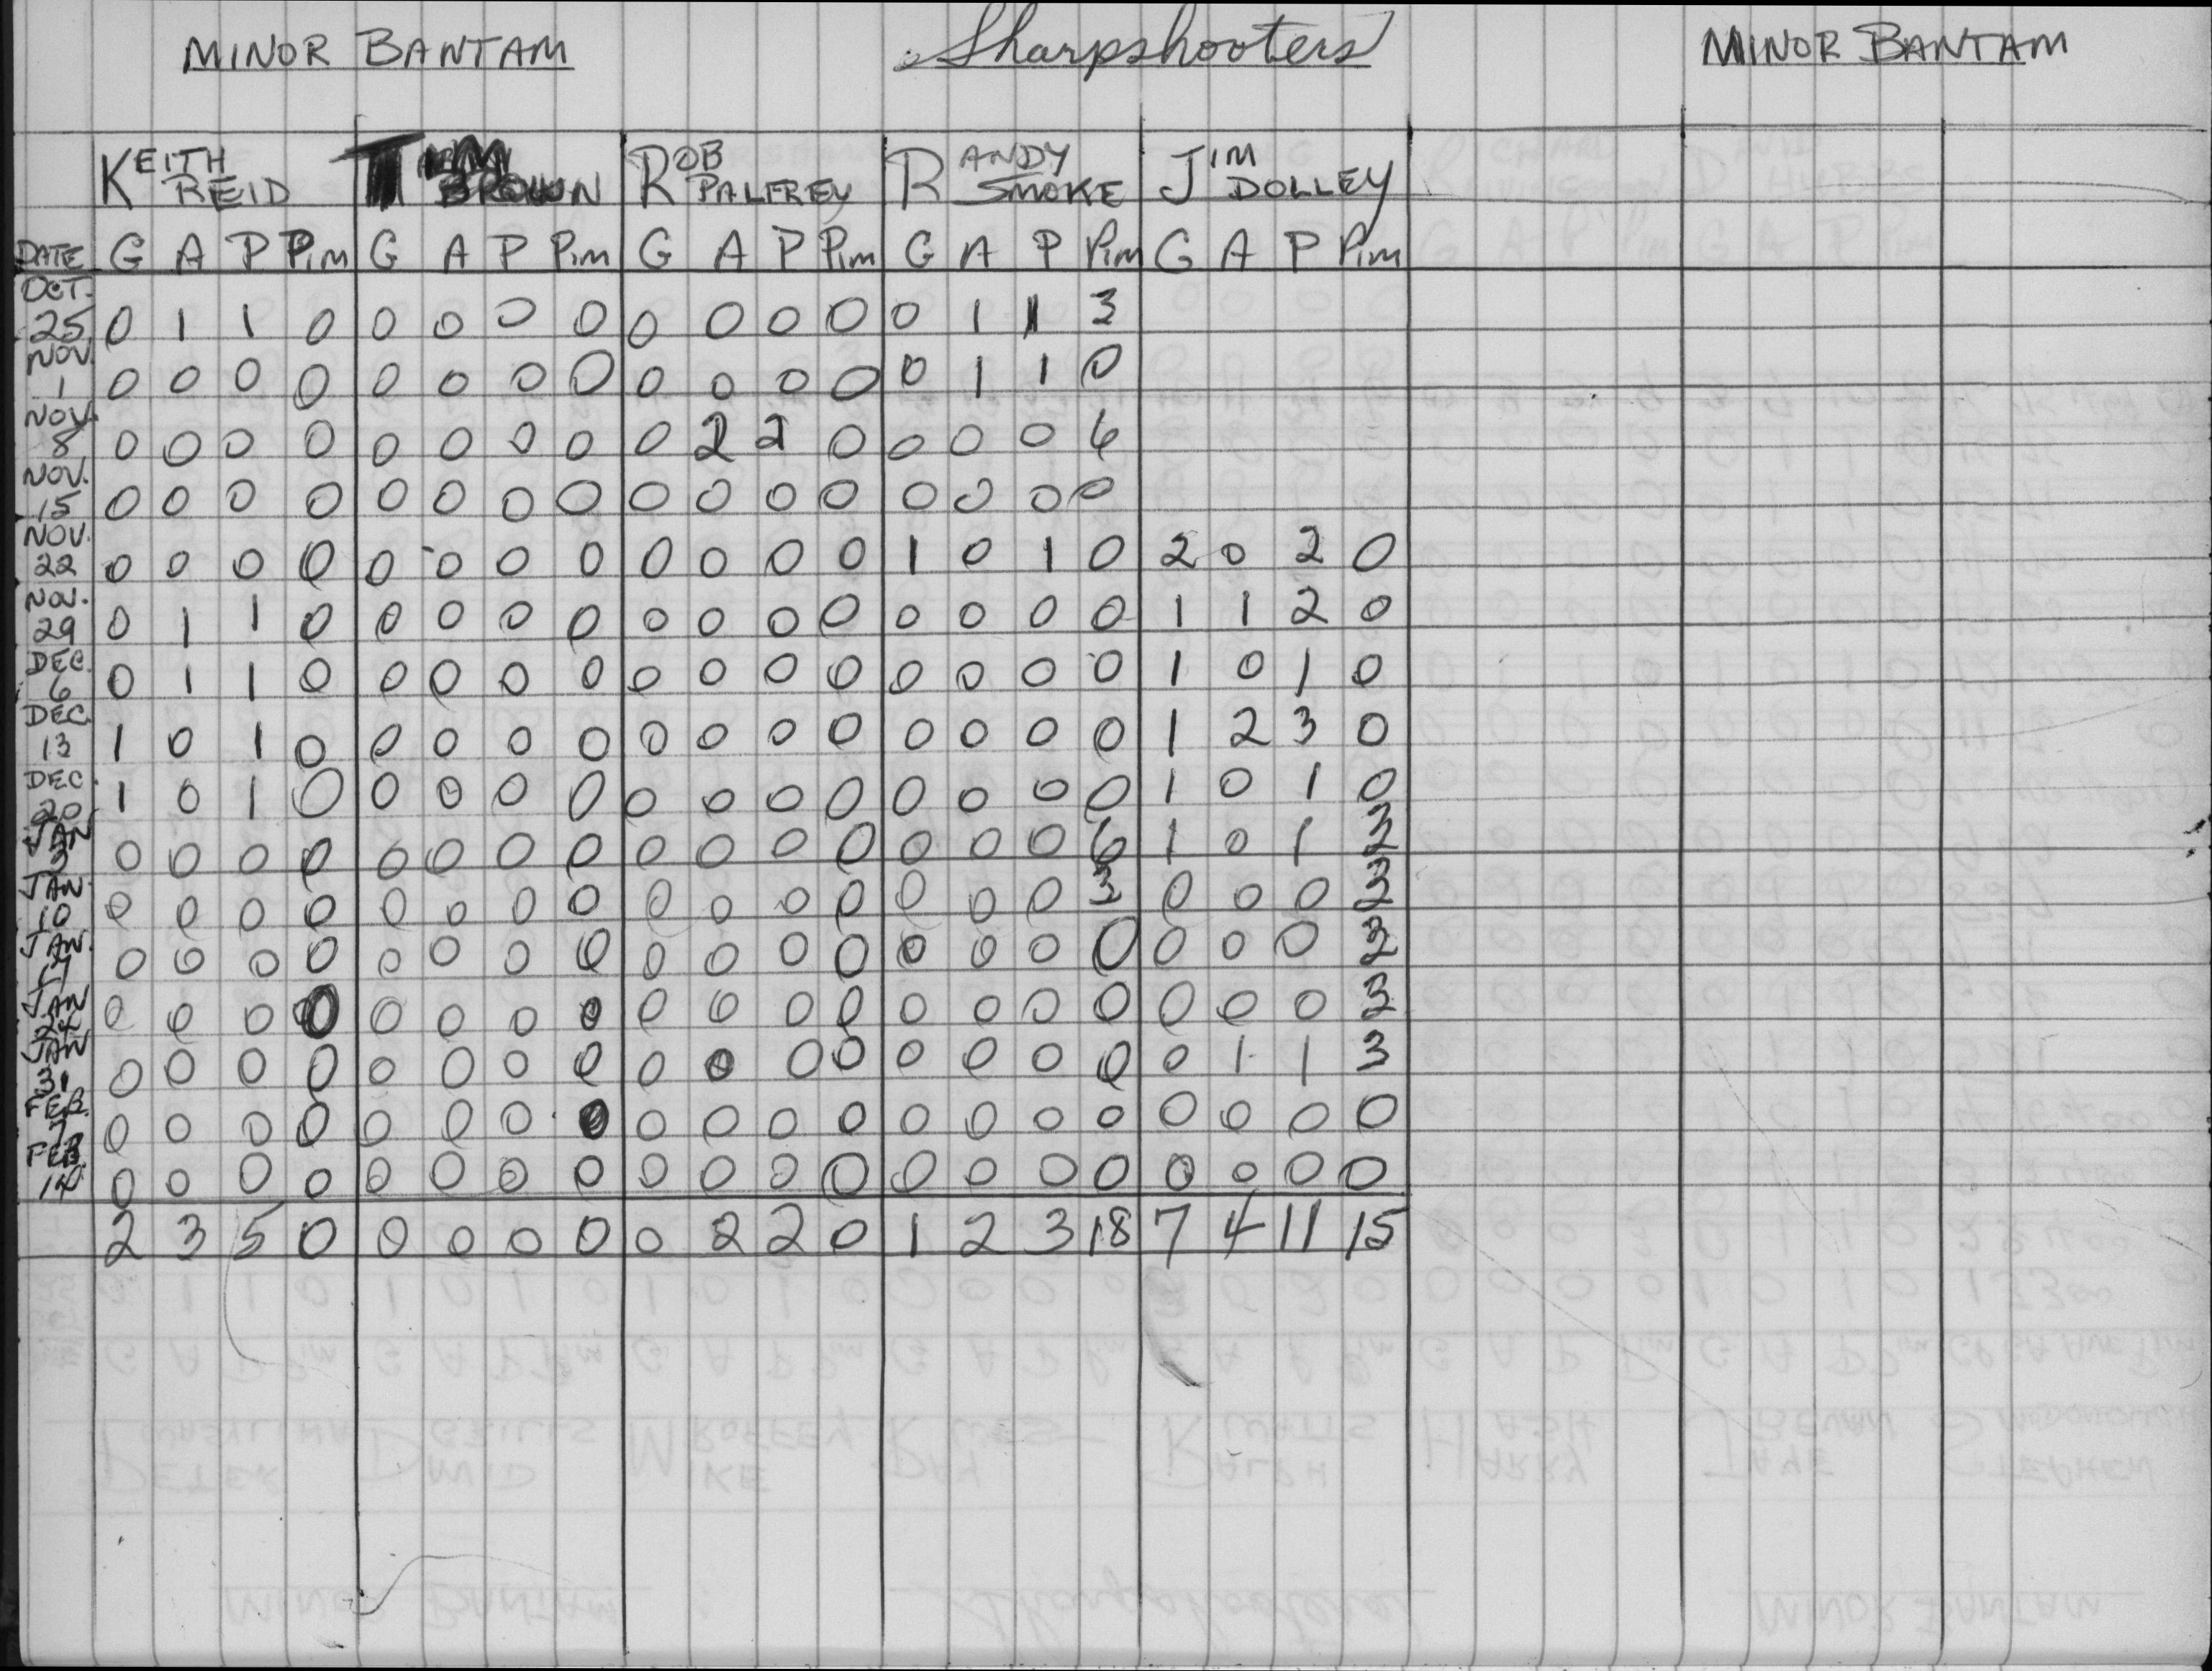 MINOR BANTAM Sharpshooters MINOR BANTAM
KEITH REID TIM BROWN ROB PALFREY RANDY SMOKE JIM DOLLEY
DATE G A P Pim G A P Pim G A P Pim G A P Pim G A P Pim
OCT. 25 0 1 1 0 0 0 0 0 0 0 0 0 0 1 1 3
NOV. 1 0 0 0 0 0 0 0 0 0 0 0 0 0 1 1 0
NOV. 8 0 0 0 0 0 0 0 0 0 2 2 0 0 0 0 6
NOV. 15 0 0 0 0 0 0 0 0 0 0 0 0 0 0 0 0
NOV. 22 0 0 0 0 0 0 0 0 0 0 0 0 1 0 1 0 2 0 2 0
NOV. 29 0 1 1 0 0 0 0 0 0 0 0 0 0 0 0 0 1 1 2 0
DEC. 6 0 1 1 0 0 0 0 0 0 0 0 0 0 0 0 0 1 0 1 0
DEC. 13 1 0 1 0 0 0 0 0 0 0 0 0 0 0 0 0 1 2 3 0
DEC. 20 1 0 1 0 0 0 0 0 0 0 0 0 0 0 0 0 1 0 1 0
JAN 3 0 0 0 0 0 0 0 0 0 0 0 0 0 0 0 6 1 0 1 3
JAN 10 0 0 0 0 0 0 0 0 0 0 0 0 0 0 0 3 0 0 0 3
JAN. 17 0 0 0 0 0 0 0 0 0 0 0 0 0 0 0 0 0 0 0 3
JAN 24 0 0 0 0 0 0 0 0 0 0 0 0 0 0 0 0 0 0 0 3
JAN 31 0 0 0 0 0 0 0 0 0 0 0 0 0 0 0 0 0 1 1 3
FEB. 7 0 0 0 0 0 0 0 0 0 0 0 0 0 0 0 0 0 0 0 0
FEB. 14 0 0 0 0 0 0 0 0 0 0 0 0 0 0 0 0 0 0 0 0
2 3 5 0 0 0 0 0 0 2 2 0 1 2 3 18 7 4 11 15